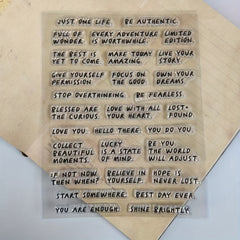 JUST ONE LIFE. BE AUTHENTIC.
FULL OF EVERY ADVENTURE LIMITED
WONDER IS WORTHWHILE. EDITION.
THE BEST IS MAKE TODAY LIVE YOUR
YET TO COME AMAZING. STORY
GIVE YOURSELF FOCUS ON OWN YOUR
PERMISSION THE GOOD DREAMS.
STOP OVERTHINKING. BE FEARLESS.
BLESSED ARE LOVE WITH ALL LOST+
THE CURIOUS. YOUR HEART. FOUND
LOVE YOU. HELLO THERE. YOU DO YOU.
COLLECT LUCKY BE YOU
BEAUTIFUL IS A STATE THE WORLD
MOMENTS. OF MIND. WILL ADJUST.
IF NOT NOW, BELIEVE IN HOPE IS
THEN WHEN? YOURSELF. NEVER LOST.
START SOMEWHERE. BEST DAY EVER.
YOU ARE ENOUGH. SHINE BRIGHTLY.